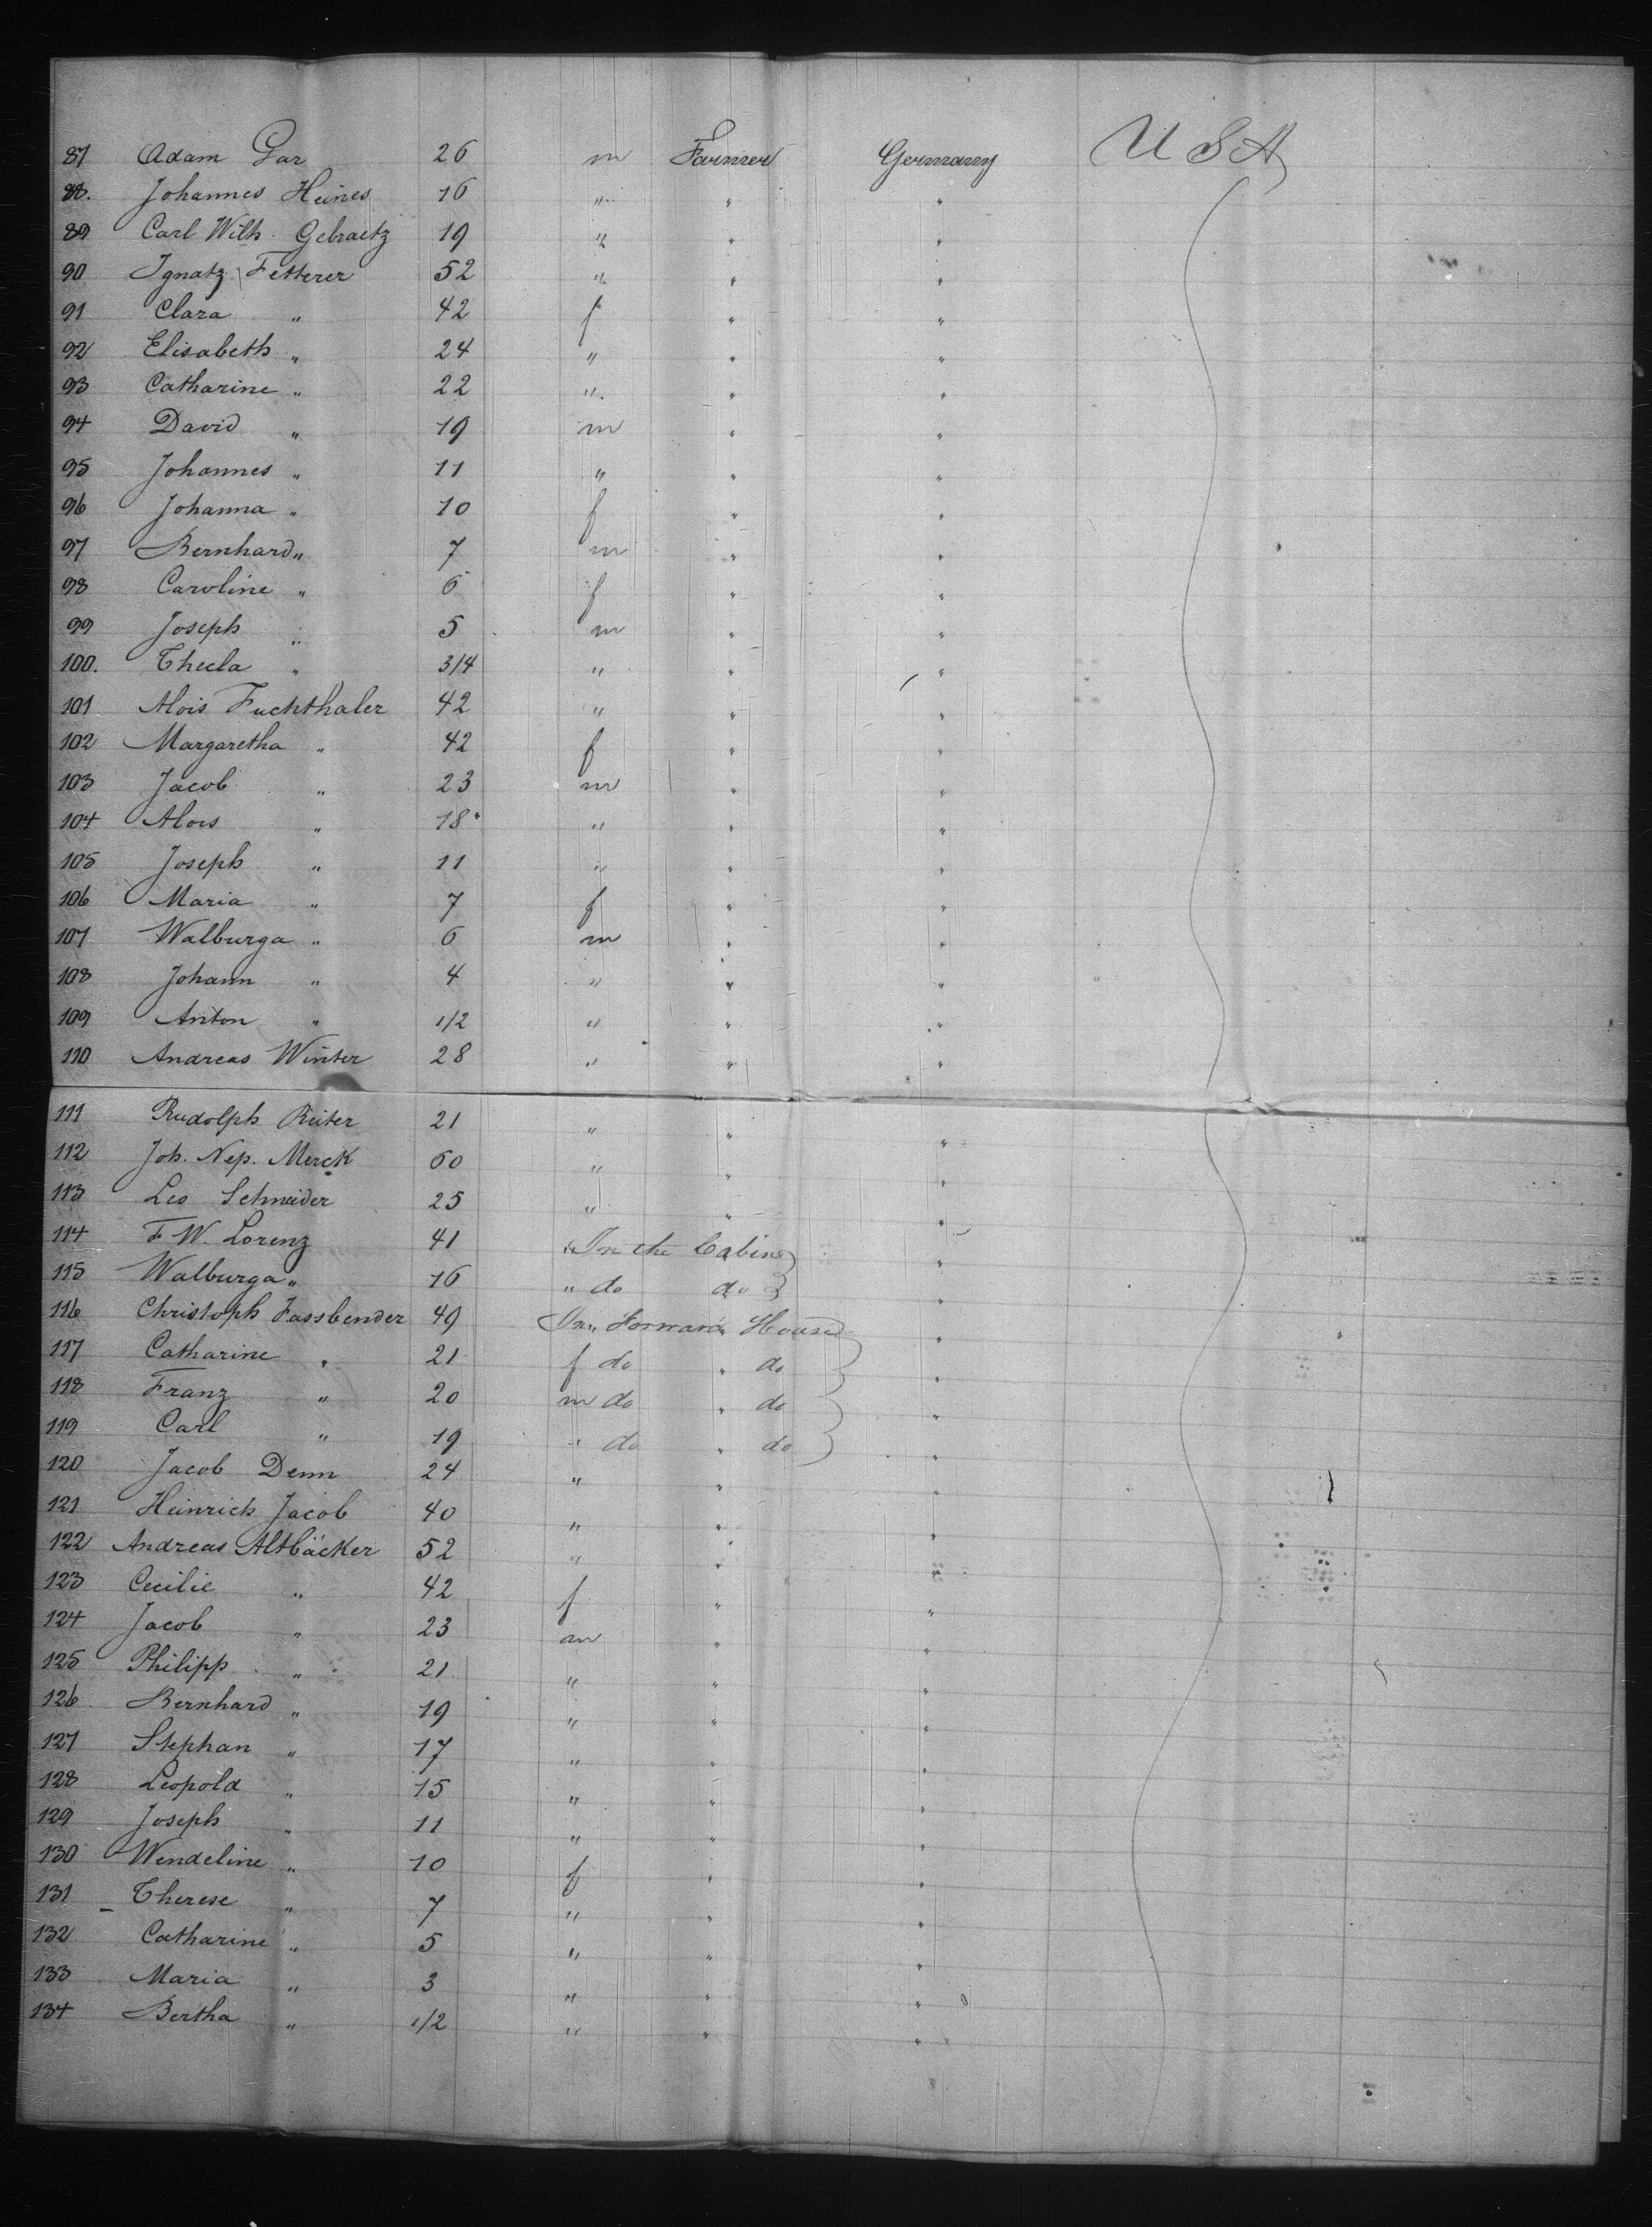 87 Adam Gar 26 m Farmer Germany U S A
88. Johannes Heines 16 " " "
89 Carl Wilh. Gebraetz 19 " " "
90 Ignatz Fetterer 52 " " "
91 Clara " 42 f " "
92 Elisabeth " 24 " " "
93 Catharine " 22 " " "
94 David " 19 m " "
95 Johannes " 11 " " "
96 Johanna " 10 f " "
97 Bernhard " 7 m " "
98 Caroline " 6 f " "
99 Joseph " 5 m " "
100. Thecla " 3/4 " " "
101 Alois Fuchthaler 42 " " "
102 Margaretha " 42 f " "
103 Jacob " 23 m " "
104 Alois " 18 " " "
105 Joseph " 11 " " "
106 Maria " 7 f " "
107 Walburga " 6 m " "
108 Johann " 4 " " "
109 Anton " 1/2 " " "
110 Andreas Winter 28 " " "
111 Rudolph Reiter 21 " " "
112 Joh. Nep. Merck 60 " " "
113 Leo Schneider 25 " " "
114 F W. Lorenz 41 " In the Cabine "
115 Walburga " 16 " do do "
116 Christoph Fassbender 49 In " Forward " House "
117 Catharine " 21 f do " do "
118 Franz " 20 m do " do "
119 Carl " 19 " do " do "
120 Jacob Denn 24 " " "
121 Heinrich Jacob 40 " " "
122 Andreas Altbäcker 52 " " "
123 Cecilie " 42 f " "
124 Jacob " 23 m " "
125 Philipp " 21 " " "
126 Bernhard " 19 " " "
127 Stephan " 17 " " "
128 Leopold " 15 " " "
129 Joseph " 11 " " "
130 Wendeline " 10 f " "
131 Therese " 7 " " "
132 Catharine " 5 " " "
133 Maria " 3 " " "
134 Bertha " 1/2 " " "